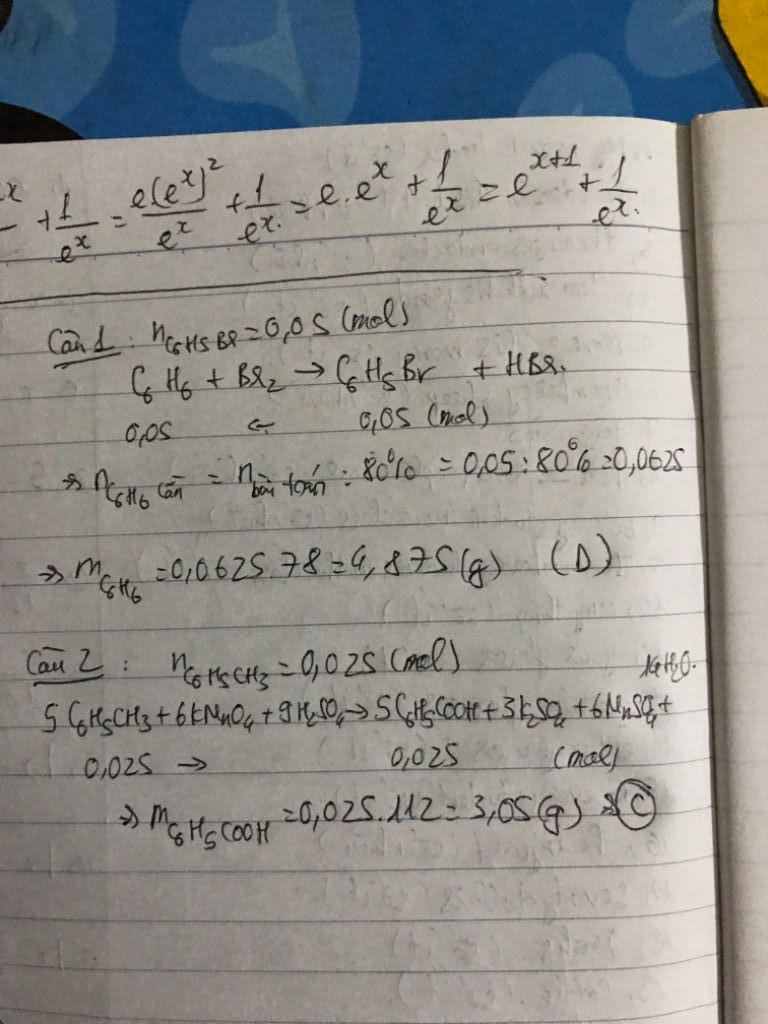 x/ + 1/e^x = e(e^x)²/e^x + 1/e^x. = e.e^x + 1/e^x = e^(x+1) + 1/e^x.
Câu 1 : nC6H5Br = 0,05 (mol)
C6H6 + Br2 → C6H5Br + HBr.
0,05 ← 0,05 (mol)
⇒ nC6H6 cần = n bài toán : 80% = 0,05 : 80% = 0,0625
⇒ mC6H6 = 0,0625.78 = 4,875 (g) (D)
Câu 2 : nC6H5CH3 = 0,025 (mol)
5C6H5CH3 + 6KMnO4 + 9H2SO4 → 5C6H5COOH + 3K2SO4 + 6MnSO4 + 14H2O.
0,025 → 0,025 (mol)
⇒ mC6H5COOH = 0,025.112 = 3,05 (g) ⇒ C